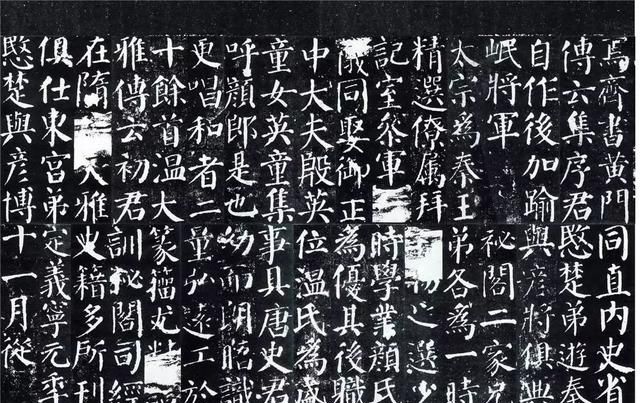 焉齊書黃門
傳云集序君
自作後加踰
岷將軍
太宗為秦王
精選僚屬拜
記室叅軍
儀同娶御正
中大夫殷英
童女英童集
呼顏郎是也
更唱和者二
十餘首溫大
雅傳云初君
在隋大雅
俱仕東宮弟
愍楚與彥博
同直內史省
愍楚弟遊秦
與彥將俱典
祕閣二家兄
弟各為一時
物之選少
時學業顏氏
為優其後職
位溫氏為盛
事具唐史君
幼而朗晤識
量弘遠工於
篆籀尤精
訓祕閣司經
史籍多所刊
定義寧元年
十一月從